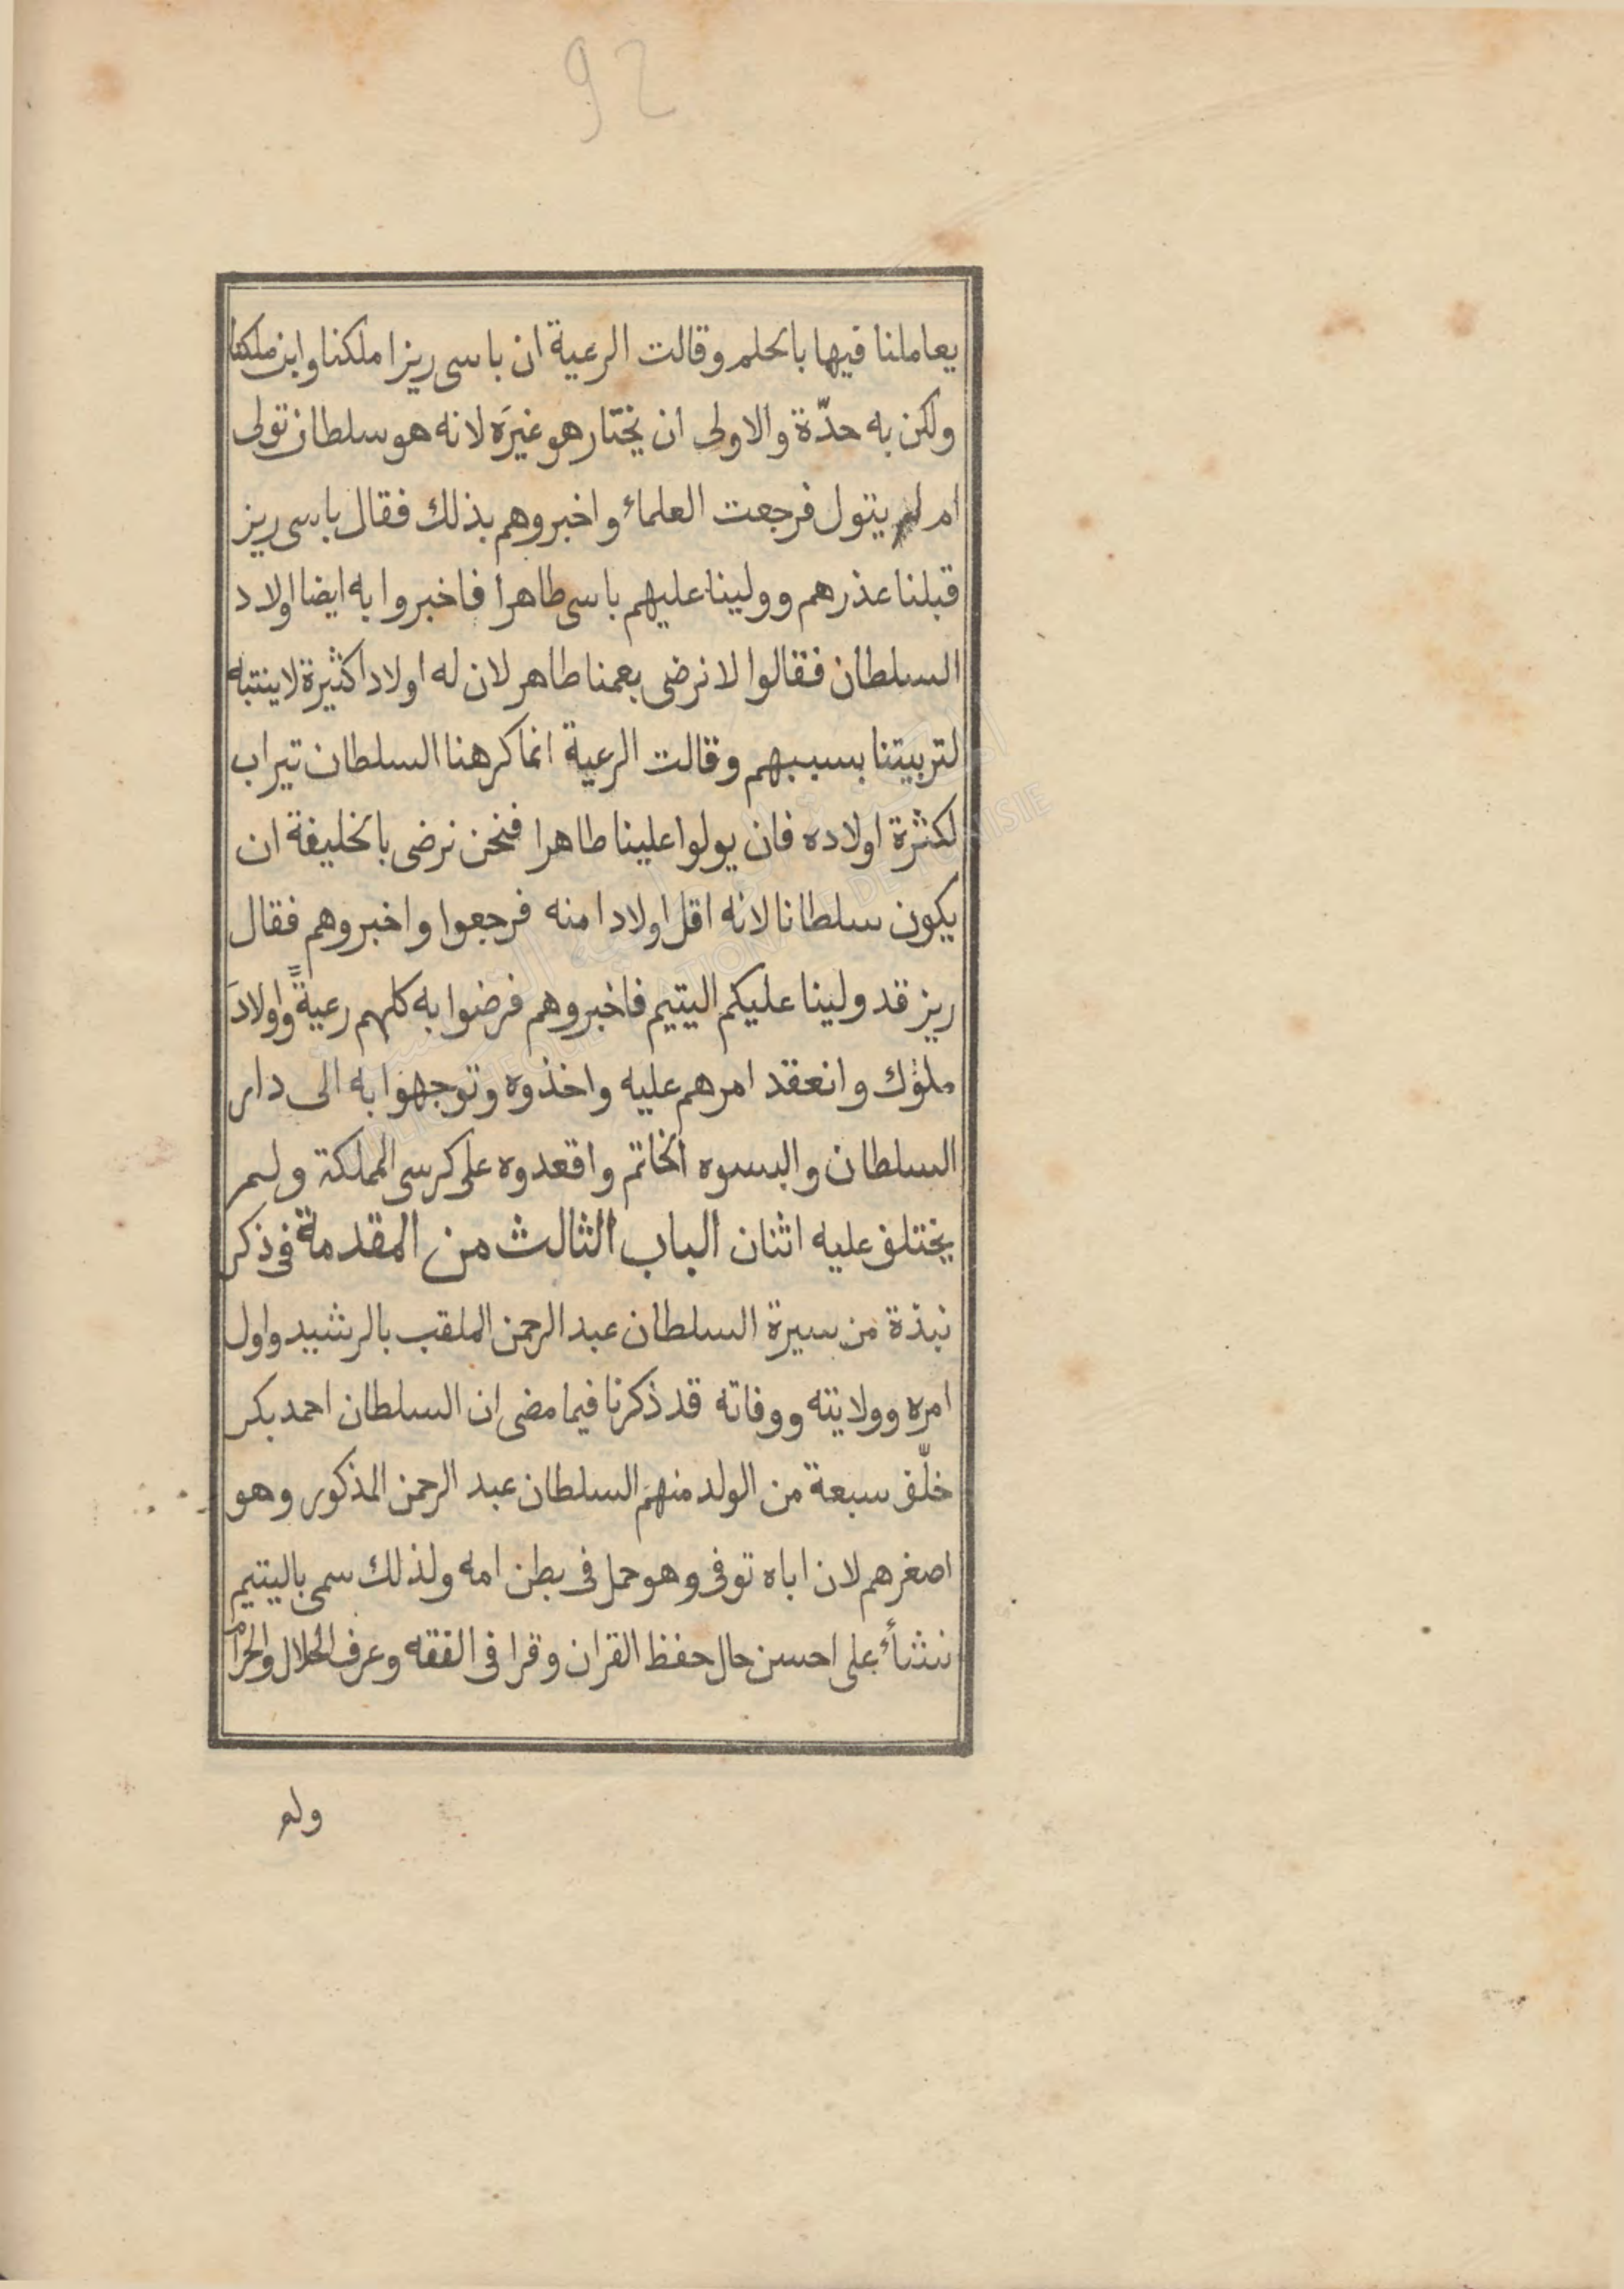 92
يعاملنا فيها بالحلم وقالت الرعية ان باسى ريزا ملكنا وابن ملكنا
ولكن به حدّة والاولى ان يختار هو غيرَه لانه هو سلطان تولى
ام لم يتول فرجعت العلماء واخبروهم بذلك فقال باسى ريز
قبلنا عذرهم وولينا عليهم باسى طاهرا فاخبروا به ايضا اولاد
السلطان فقالوا لا نرضى بعمنا طاهر لان له اولادا كثيرة لا ينتبه
لتربيتنا بسببهم وقالت الرعية انما كرهنا السلطان تيراب
لكثرة اولاده فان يولوا علينا طاهرا فنحن نرضى بالخليفة ان
يكون سلطانا لانه اقل اولادا منه فرجعوا واخبروهم فقال
ريز قد ولينا عليكم اليتيم فاخبروهم فرضوا به كلهم رعيةً واولادَ
ملوك وانعقد امرهم عليه واخذوه وتوجهوا به الى دار
السلطان والبسوه الخاتم واقعدوه على كرسى المملكة ولم
يختلف عليه اثنان الباب الثالث من المقدمة فى ذكر
نبذة من سيرة السلطان عبد الرحمن الملقب بالرشيد واول
امره وولايته ووفاته قد ذكرنا فيما مضى ان السلطان احمد بكر
خلّف سبعة من الولد منهم السلطان عبد الرحمن المذكور وهو
اصغرهم لان اباه توفى وهو حمل فى بطن امه ولذلك سمى باليتيم
نشأ على احسن حال حفظ القران وقرا فى الفقه وعرف الحلال والحرام
ولم